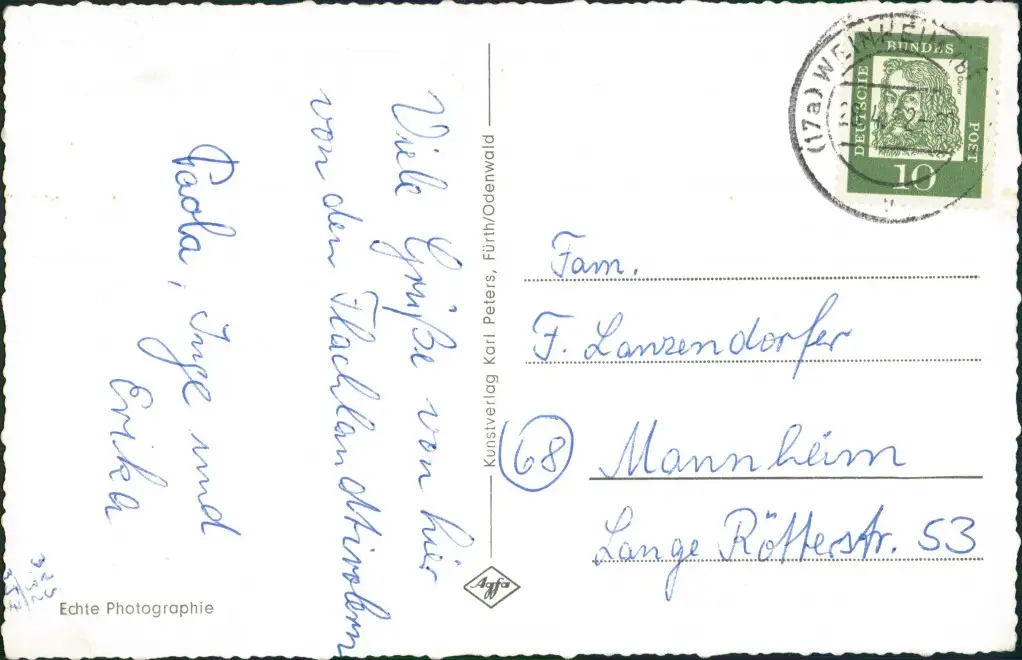 Viele Grüße von hier
von den Flachlandtirolern
Paola, Inge und
Erika
Kunstverlag Karl Peters, Fürth/Odenwald
Agfa
Echte Photographie
(17a) WEINHEIM
DEUTSCHE
BUNDES
POST
Dürer
10
Fam.
F. Lanzendorfer
(68) Mannheim
Lange Rötterstr. 53